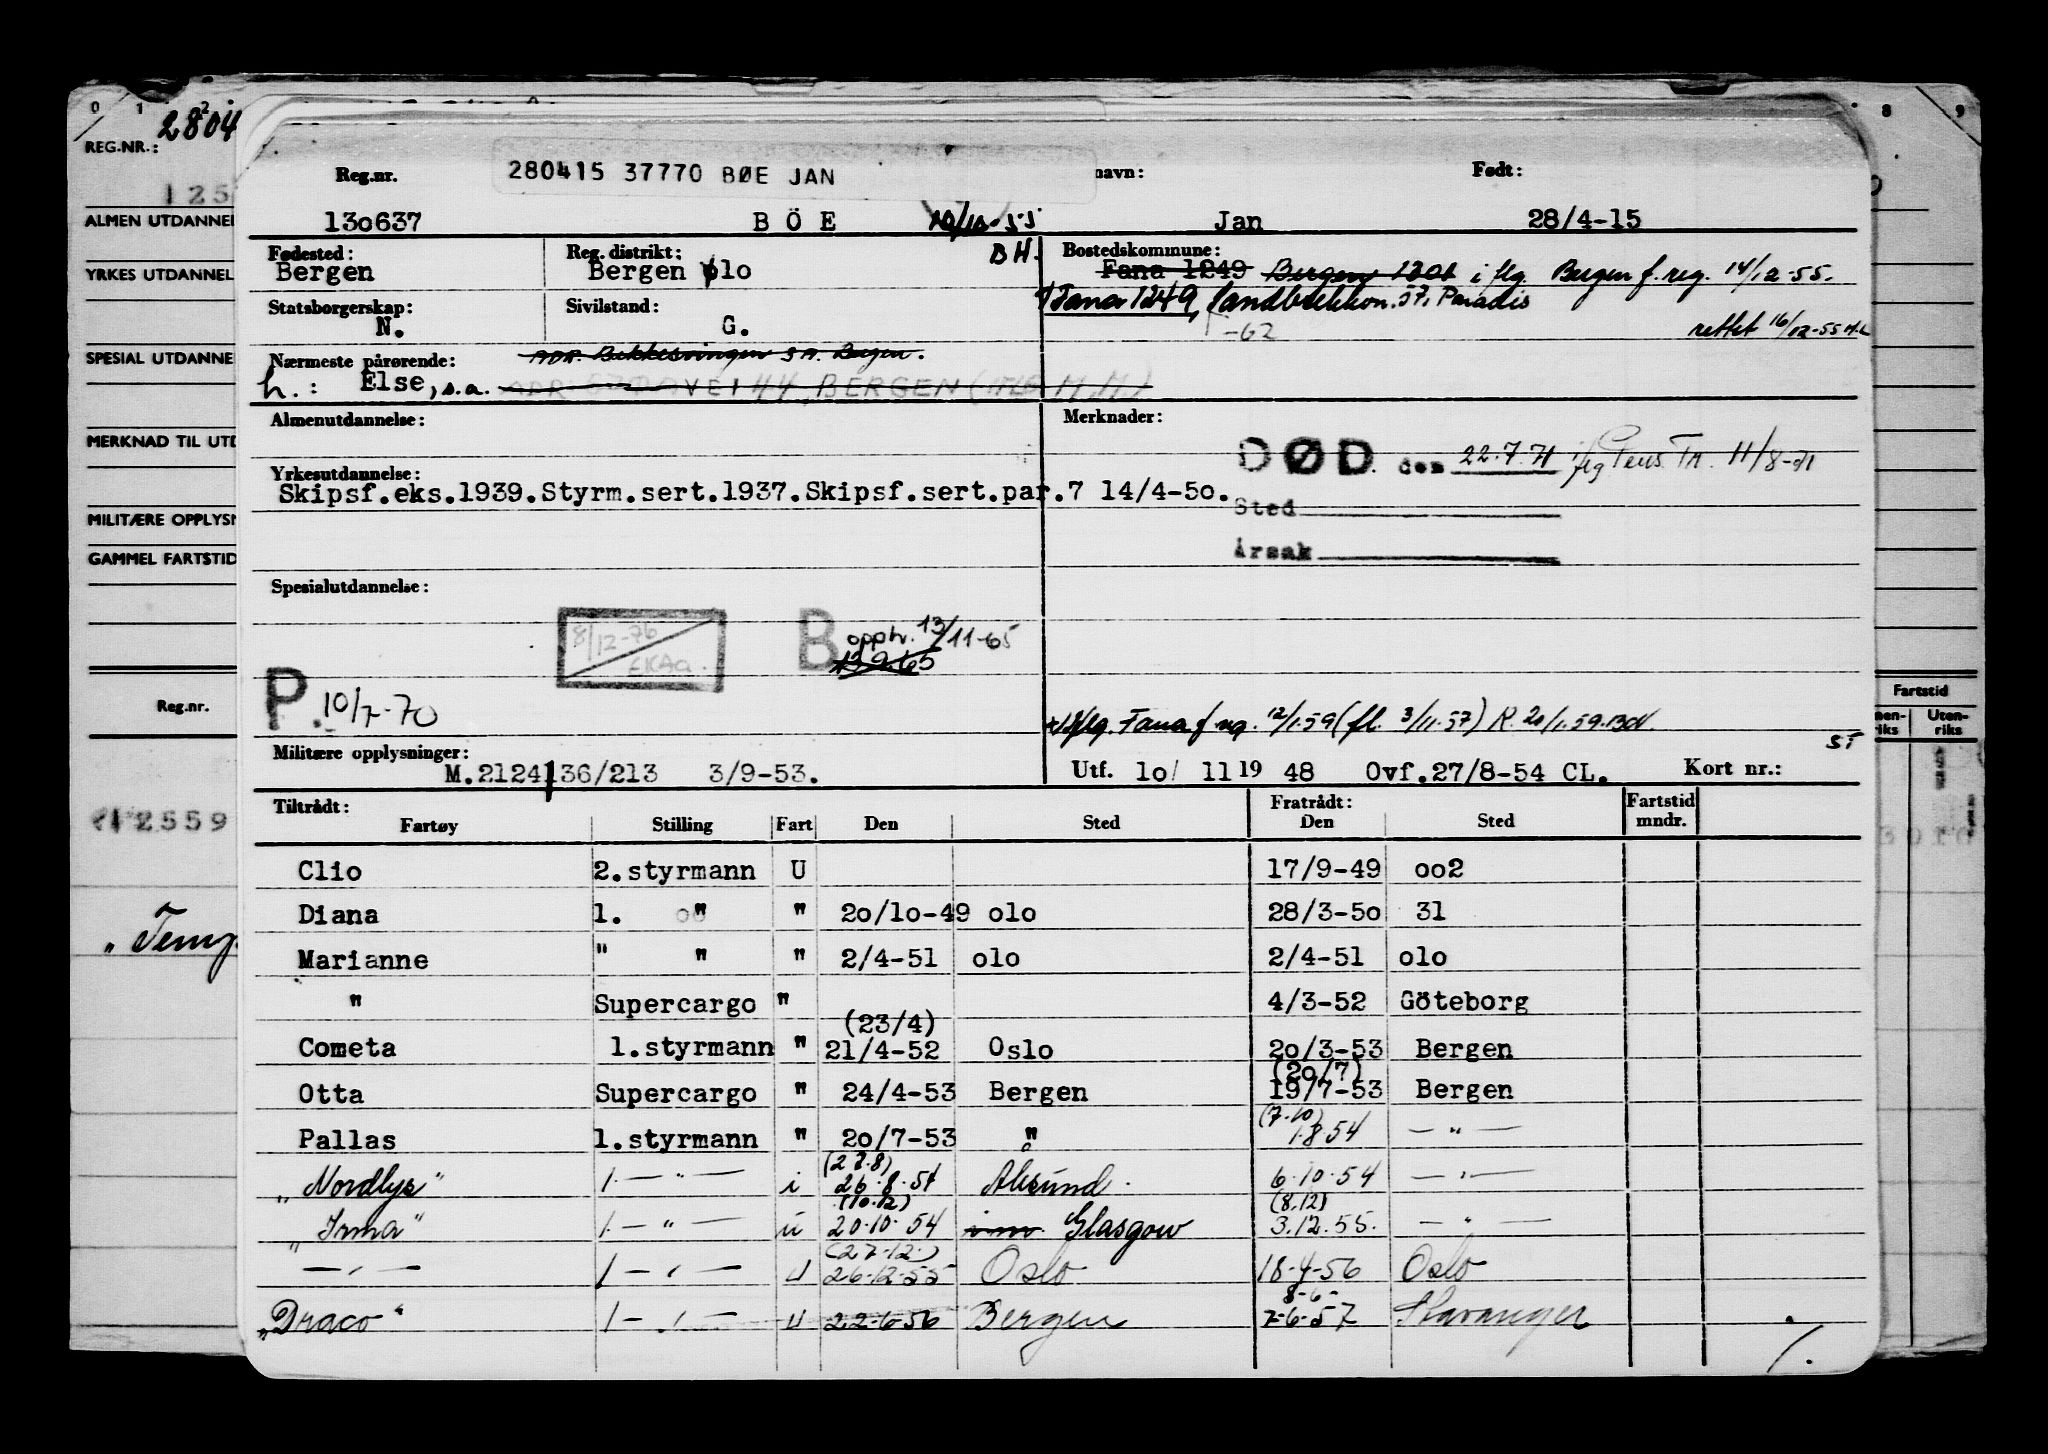 0 1 2 8 9
2804
REG.NR.:
125
ALMEN UTDANNEL
YRKES UTDANNEL
SPESIAL UTDANNE
MERKNAD TIL UTD
MILITÆRE OPPLYSN
GAMMEL FARTSTID
Reg.nr.
12559
"Temp.
Fartstid
Uten-
riks
Reg.nr. 280415 37770 BØE JAN navn: Født:
130637 BÖE 10/12-55 Jan 28/4-15
Fødested: Reg. distrikt: BH. Bostedskommune:
Bergen Bergen olo Fana 1249 Bergen 1301 i flg. Bergen f.reg. 14/12-55.
Statsborgerskap: Sivilstand: Fana 1249, Sandbrekkvn. 57, Paradis
N. G. -62 rettet 16/12-55
Nærmeste pårørende: ADR. Bekkesvingen 3A. Bergen.
h.: Else, s.a. VEI 44, BERGEN
Almenutdannelse: Merknader:
DØD. den 22.7.71 jfg Pens. Tr. 11/8-71
Yrkesutdannelse:
Skipsf.eks.1939.Styrm.sert.1937.Skipsf.sert.par.7 14/4-5o.
Sted
Årsak
Spesialutdannelse:
8/12-76
B opph. 13/11-65
13.9.65
P. 10/7-70
Iflg. Fana f.reg. 12/1.59 (fl. 3/11.57) R. 20/1.59.
Militære opplysninger:
M.2124136/213 3/9-53. Utf. 1o/ 11 19 48 Ovf.27/8-54 CL. Kort nr.:
Tiltrådt: Fratrådt: Fartstid
Fartøy Stilling Fart Den Sted Den Sted mndr.
Clio 2.styrmann U 17/9-49 oo2
Diana 1. " " 2o/1o-49 olo 28/3-5o 31
Marianne " " " 2/4-51 olo 2/4-51 olo
" Supercargo " 4/3-52 Göteborg
(23/4)
Cometa 1.styrmann " 21/4-52 Oslo 2o/3-53 Bergen
(2o/7)
Otta Supercargo " 24/4-53 Bergen 19/7-53 Bergen
(7.10)
Pallas 1.styrmann " 2o/7-53 " 1.8.54 — " —
(27.8)
"Nordlys" 1 — " — i 26.8.54 Ålesund. 6.10.54 — " —
(10.12) (8.12)
"Irma" 1 — " — u 20.10.54 Glasgow 3.12.55. — " —
(27.12.)
— " — 1 — " — u 26-12-55 Oslo 18-4-56 Oslo
8-6-
"Draco" 1 — " — u 22-6-56 Bergen 7-6-57 Stavanger
/.